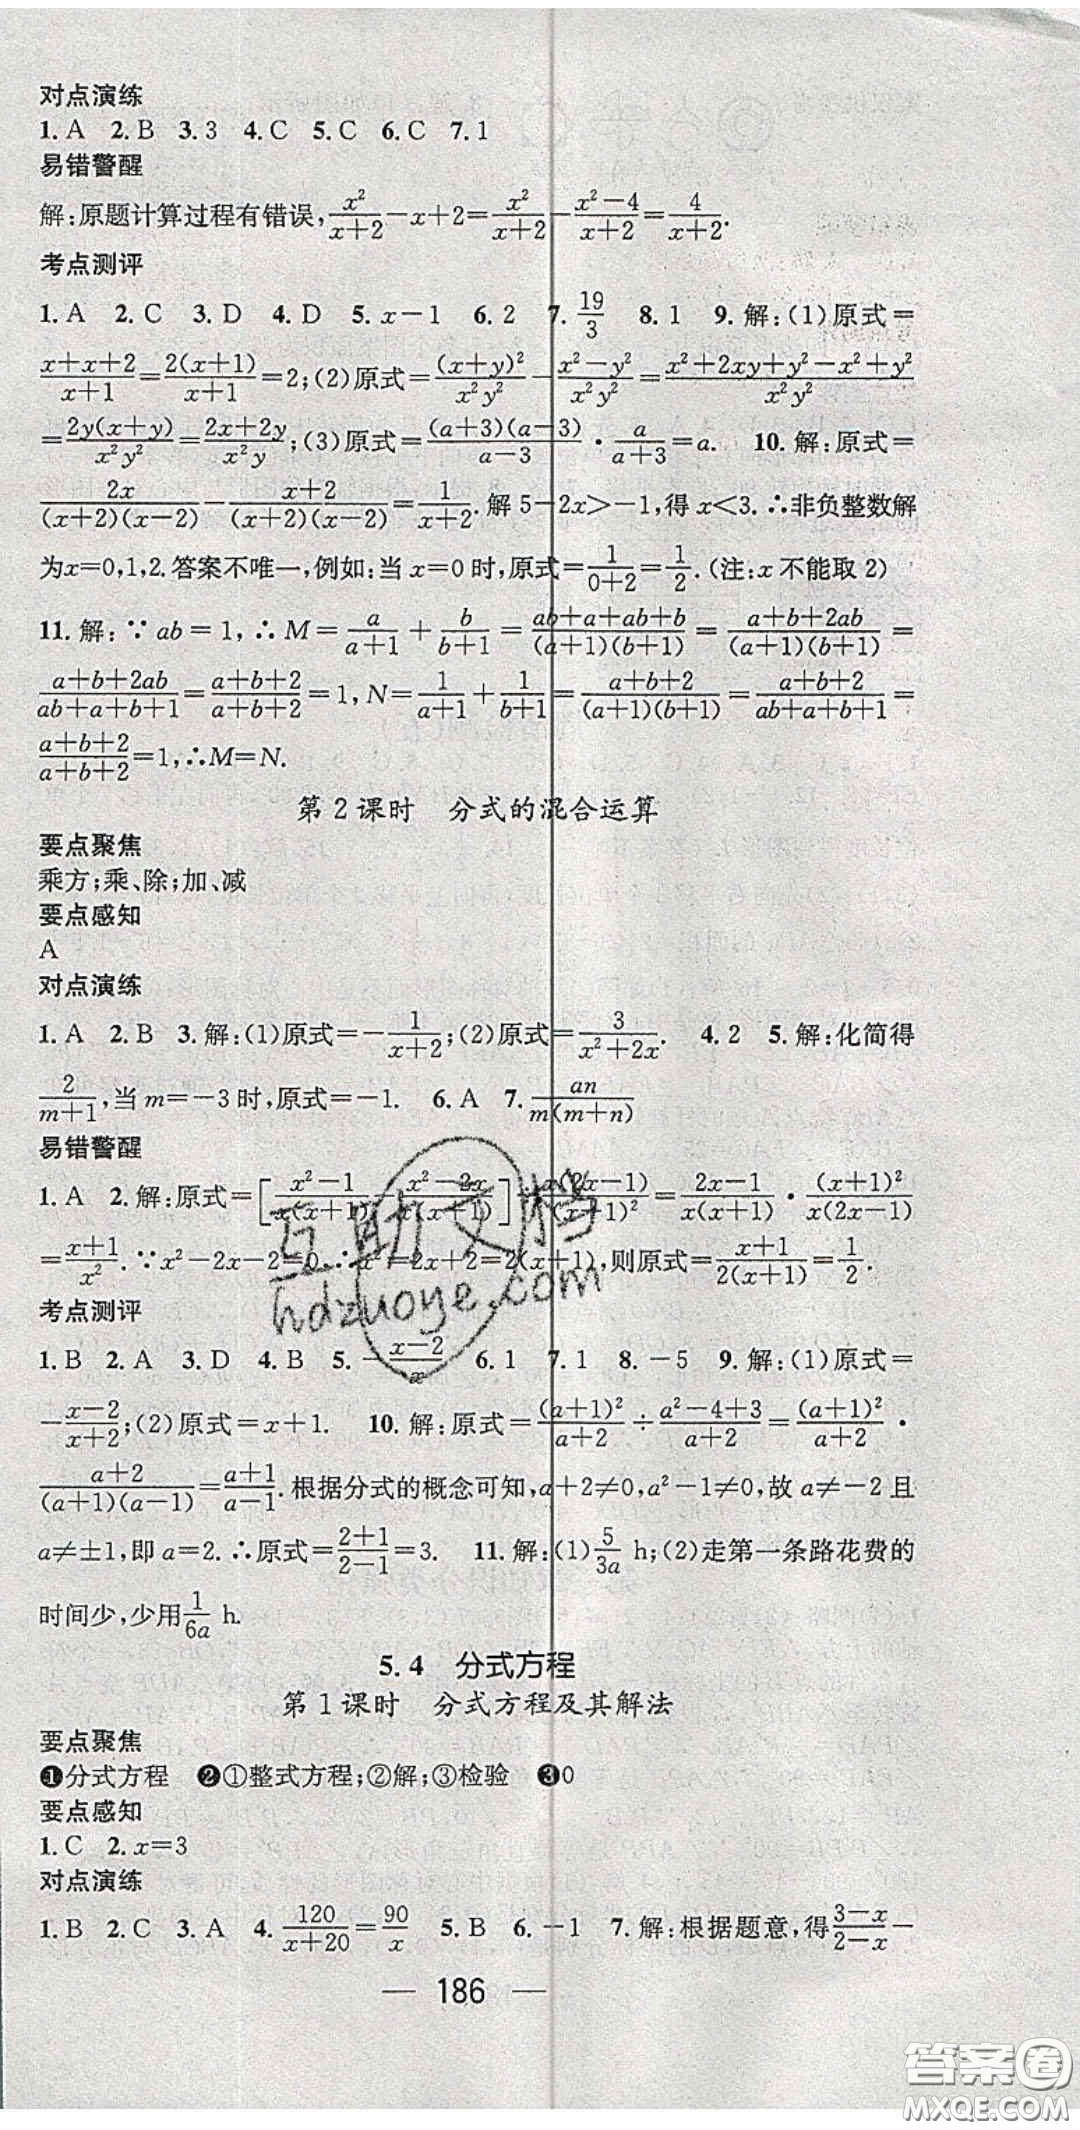 对点演练
1. A 2. B 3. 3 4. C 5. C 6. C 7. 1
易错警醒
解:原题计算过程有错误, x²/(x+2) -x+2= x²/(x+2) - (x²-4)/(x+2) = 4/(x+2).
考点测评
1. A 2. C 3. D 4. D 5. x-1 6. 2 7. 19/3 8. 1 9. 解:(1)原式=
(x+x+2)/(x+1) = 2(x+1)/(x+1) =2;(2)原式= (x+y)²/(x²y²) - (x²-y²)/(x²y²) = (x²+2xy+y²-x²+y²)/(x²y²)
= 2y(x+y)/(x²y²) = (2x+2y)/(x²y);(3)原式= (a+3)(a-3)/(a-3) · a/(a+3) =a. 10. 解:原式=
2x/((x+2)(x-2)) - (x+2)/((x+2)(x-2)) = 1/(x+2). 解 5-2x>-1,得 x<3. ∴非负整数解
为x=0,1,2. 答案不唯一,例如:当 x=0 时,原式= 1/(0+2) = 1/2. (注:x 不能取 2)
11. 解:∵ ab=1, ∴ M= a/(a+1) + b/(b+1) = (ab+a+ab+b)/((a+1)(b+1)) = (a+b+2ab)/((a+1)(b+1)) =
(a+b+2ab)/(ab+a+b+1) = (a+b+2)/(a+b+2) =1, N= 1/(a+1) + 1/(b+1) = (a+b+2)/((a+1)(b+1)) = (a+b+2)/(ab+a+b+1) =
(a+b+2)/(a+b+2) =1, ∴M=N.
第 2 课时 分式的混合运算
要点聚焦
乘方;乘、除;加、减
要点感知
A
对点演练
1. A 2. B 3. 解:(1)原式=- 1/(x+2);(2)原式= 3/(x²+2x). 4. 2 5. 解:化简得
2/(m+1),当 m=-3 时,原式=-1. 6. A 7. an/(m(m+n))
易错警醒
1. A 2. 解:原式= [(x²-1)/(x(x+1)) - (x²-2x)/(x(x+1))] ÷ x(2x-1)/(x+1)² = (2x-1)/(x(x+1)) · (x+1)²/(x(2x-1))
= (x+1)/x². ∵x²-2x-2=0, ∴x²=2x+2=2(x+1),则原式= (x+1)/(2(x+1)) = 1/2.
考点测评
1. B 2. A 3. D 4. B 5. - (x-2)/x 6. 1 7. 1 8. -5 9. 解:(1)原式=
- (x-2)/(x+2);(2)原式=x+1. 10. 解:原式= (a+1)²/(a+2) ÷ (a²-4+3)/(a+2) = (a+1)²/(a+2) ·
(a+2)/((a+1)(a-1)) = (a+1)/(a-1). 根据分式的概念可知,a+2≠0,a²-1≠0,故 a≠-2 且
a≠±1,即 a=2. ∴原式= (2+1)/(2-1) =3. 11. 解:(1) 5/(3a) h;(2)走第一条路花费的
时间少,少用 1/(6a) h.
5.4 分式方程
第 1 课时 分式方程及其解法
要点聚焦
❶分式方程 ❷①整式方程;②解;③检验 ❸0
要点感知
1. C 2. x=3
对点演练
1. B 2. C 3. A 4. 120/(x+20) = 90/x 5. B 6. -1 7. 解:根据题意,得 (3-x)/(2-x) -
— 186 —
互助文档
hdzuoye.com
答案圈
MXQE.COM